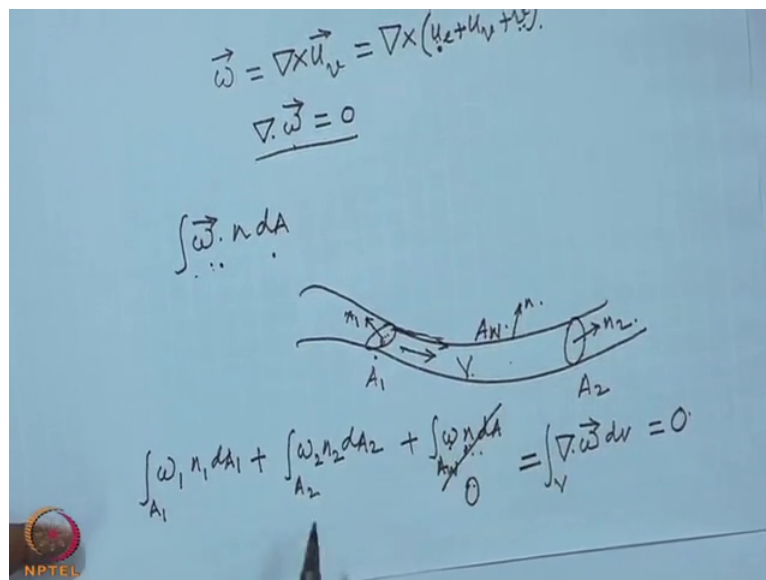 ω⃗ = ∇×u⃗ᵥ = ∇×(uₑ+uᵥ+v).
∇.ω⃗ = 0
∫ω⃗.n dA
n₁
A₁
V
A_W.
n.
n₂.
A₂
∫_{A₁} ω₁ n₁ dA₁ + ∫_{A₂} ω₂ n₂ dA₂ + ∫_{A_W} ω n dA 0 = ∫_V ∇.ω⃗ dv = 0
NPTEL